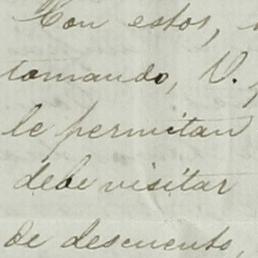 Con estos,
tomando, V.
le permitan
debe visitar
de descuento,